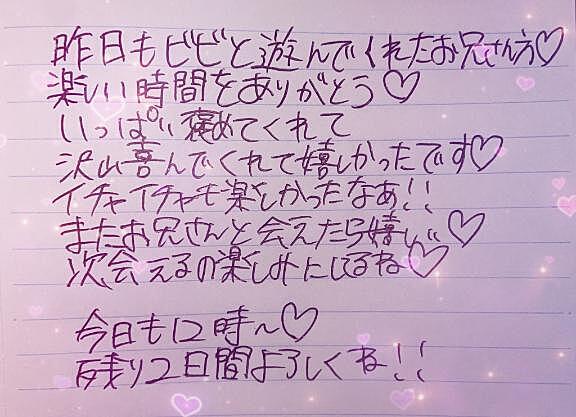 昨日もビビと遊んでくれたお兄さん方♡
楽しい時間をありがとう♡
いっぱい褒めてくれて
沢山喜んでくれて嬉しかったです♡
イチャイチャも楽しかったなあ!!
またお兄さんと会えたら嬉しい♡
次会えるの楽しみにしてるね♡
今日も12時〜♡
残り2日間よろしくね!!